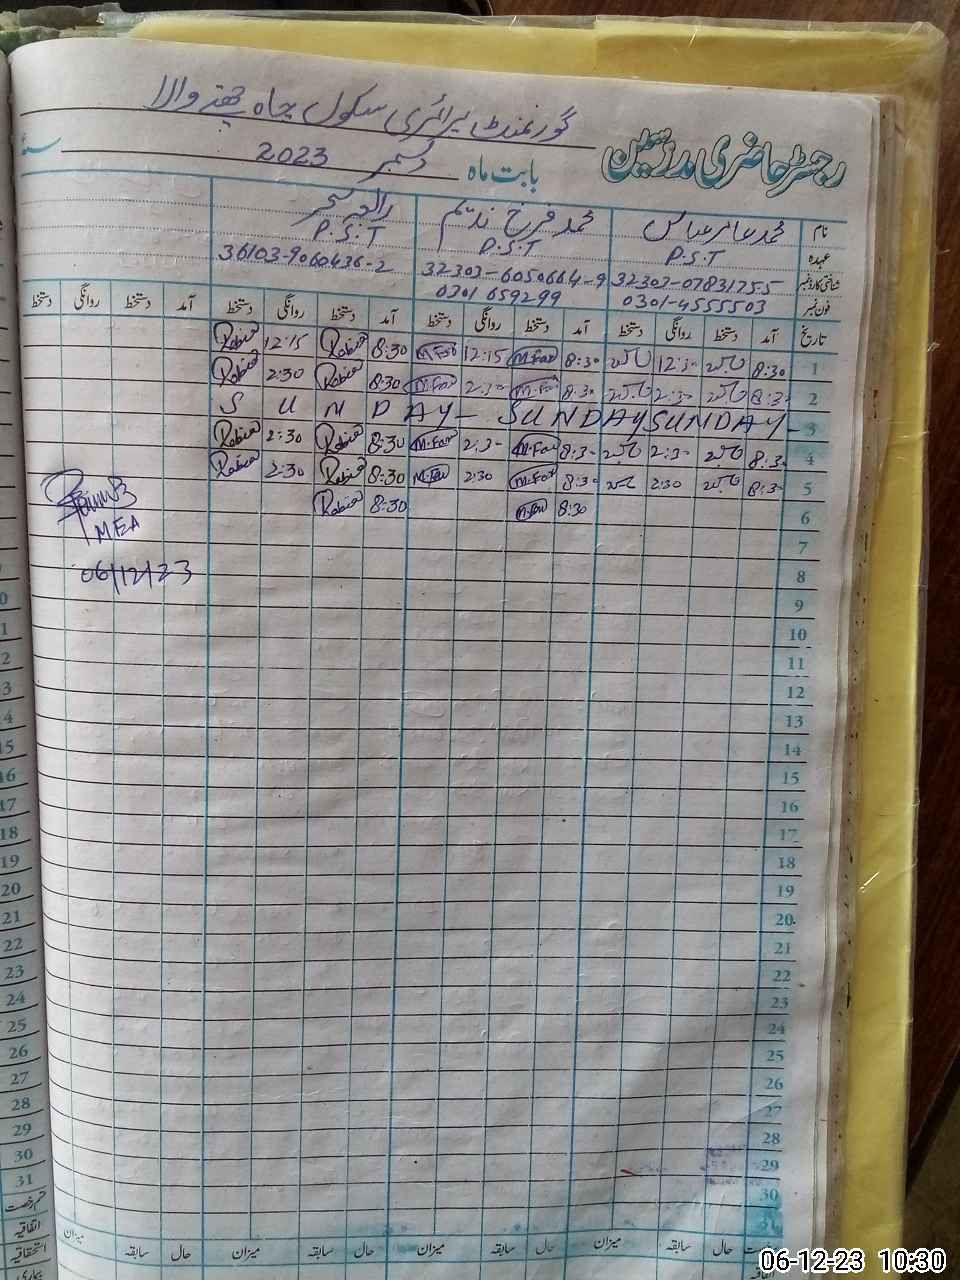 گورنمنٹ پرائمری سکول چاہ والا
رجسٹر حاضری مدرسین
بابت ماہ دسمبر 2023
نام محمد عامر عباس محمد فرخ ندیم رابعہ سحر
عہدہ P.S.T P.S.T P.S.T
شناختی کارڈ نمبر 32303-0783175-5 32303-6050664-9 36103-9060436-2
فون نمبر 0301-4555503 0301 659299
تاریخ آمد دستخط روانگی دستخط آمد دستخط روانگی دستخط آمد دستخط روانگی دستخط آمد دستخط روانگی دستخط
1 8:30 12:30 8:30 M.Far 12:15 M.Far 8:30 Rabia 12:15 Rabia
2 8:30 2:30 8:30 M.Far 2:30 M.Far 8:30 Rabia 2:30 Rabia
3 SUNDAY- SUNDAY SUNDAY-
4 8:30 2:30 8:30 M.Far 2:30 M.Far 8:30 Rabia 2:30 Rabia
5 8:30 2:30 8:30 M.Far 2:30 M.Far 8:30 Rabia 2:30 Rabia
6 8:30 M.Far 8:30 Rabia
MEA
06/12/23
7
8
9
10
11
12
13
14
15
16
17
18
19
20
21
22
23
24
25
26
27
28
29
30
31
حال سابقہ میزان حال سابقہ میزان حال سابقہ میزان حال سابقہ میزان
16
17
18
19
20
21
22
23
24
25
26
27
28
29
30
31
قسم رخصت
اتفاقیہ
استحقاقیہ
بیماری
06-12-23 10:30